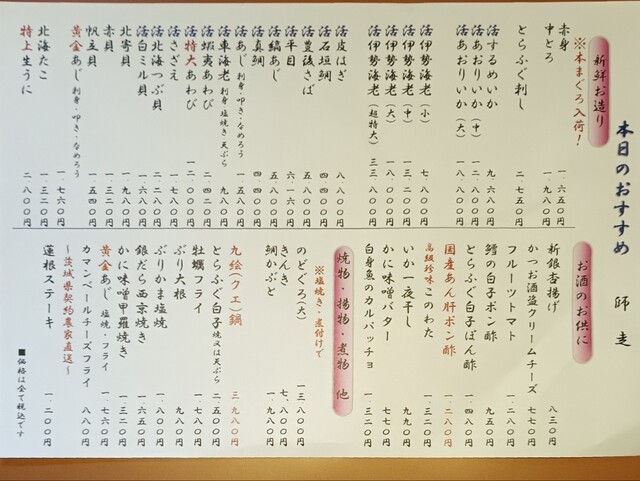 本日のおすすめ 師走
新鮮お造り
※本まぐろ入荷!
赤身 一.六五〇円
中とろ 一.九八〇円
とらふぐ刺し 二.七五〇円
活するめいか
活あおりいか(中)
活あおりいか(大)
活伊勢海老(小) 七.八〇〇円
活伊勢海老(中)
活伊勢海老(大)
活伊勢海老(超特大)
活皮はぎ
活石垣鯛
活豊後さば
活平目
活縞あじ
活真鯛
活あじ 刺身・叩き・なめろう
活車海老 刺身 塩焼き 天ぷら
活蝦夷あわび
活特大あわび
活さざえ
活北海つぶ貝
活白ミル貝
北寄貝 一.九八〇円
赤貝
帆立貝 一.五四〇円
黄金あじ 刺身・叩き・なめろう 一.七六〇円
北海たこ 一.三二〇円
特上生うに 二.八〇〇円
お酒のお供に
新銀杏揚げ 八三〇円
かつお酒盗クリームチーズ 七七〇円
フルーツトマト 一.二八〇円
鱈の白子ポン酢
とらふぐ白子ぽん酢
国産あん肝ポン酢 一.二八〇円
高級珍味このわた 一.三二〇円
いか一夜干し 九九〇円
かに味噌バター 七七〇円
白身魚のカルパッチョ 一.三二〇円
焼物・揚物・煮物 他
※塩焼き・煮付けで
のどぐろ(大) 一三.八〇〇円
きんき 七.八〇〇円
鯛かぶと 一.九八〇円
九絵(クエ)鍋 三.九八〇円
とらふぐ白子 焼又は天ぷら 二.五〇〇円
牡蠣フライ 一.七六〇円
ぶり大根 九八〇円
ぶりかま塩焼
銀だら西京焼き 一.六五〇円
かに味噌甲羅焼き 一.三二〇円
黄金あじ 塩焼・フライ 一.七六〇円
カマンベールチーズフライ 八八〇円
〜茨城県契約農家直送〜
蓮根ステーキ 一.二〇〇円
■価格は全て税込です